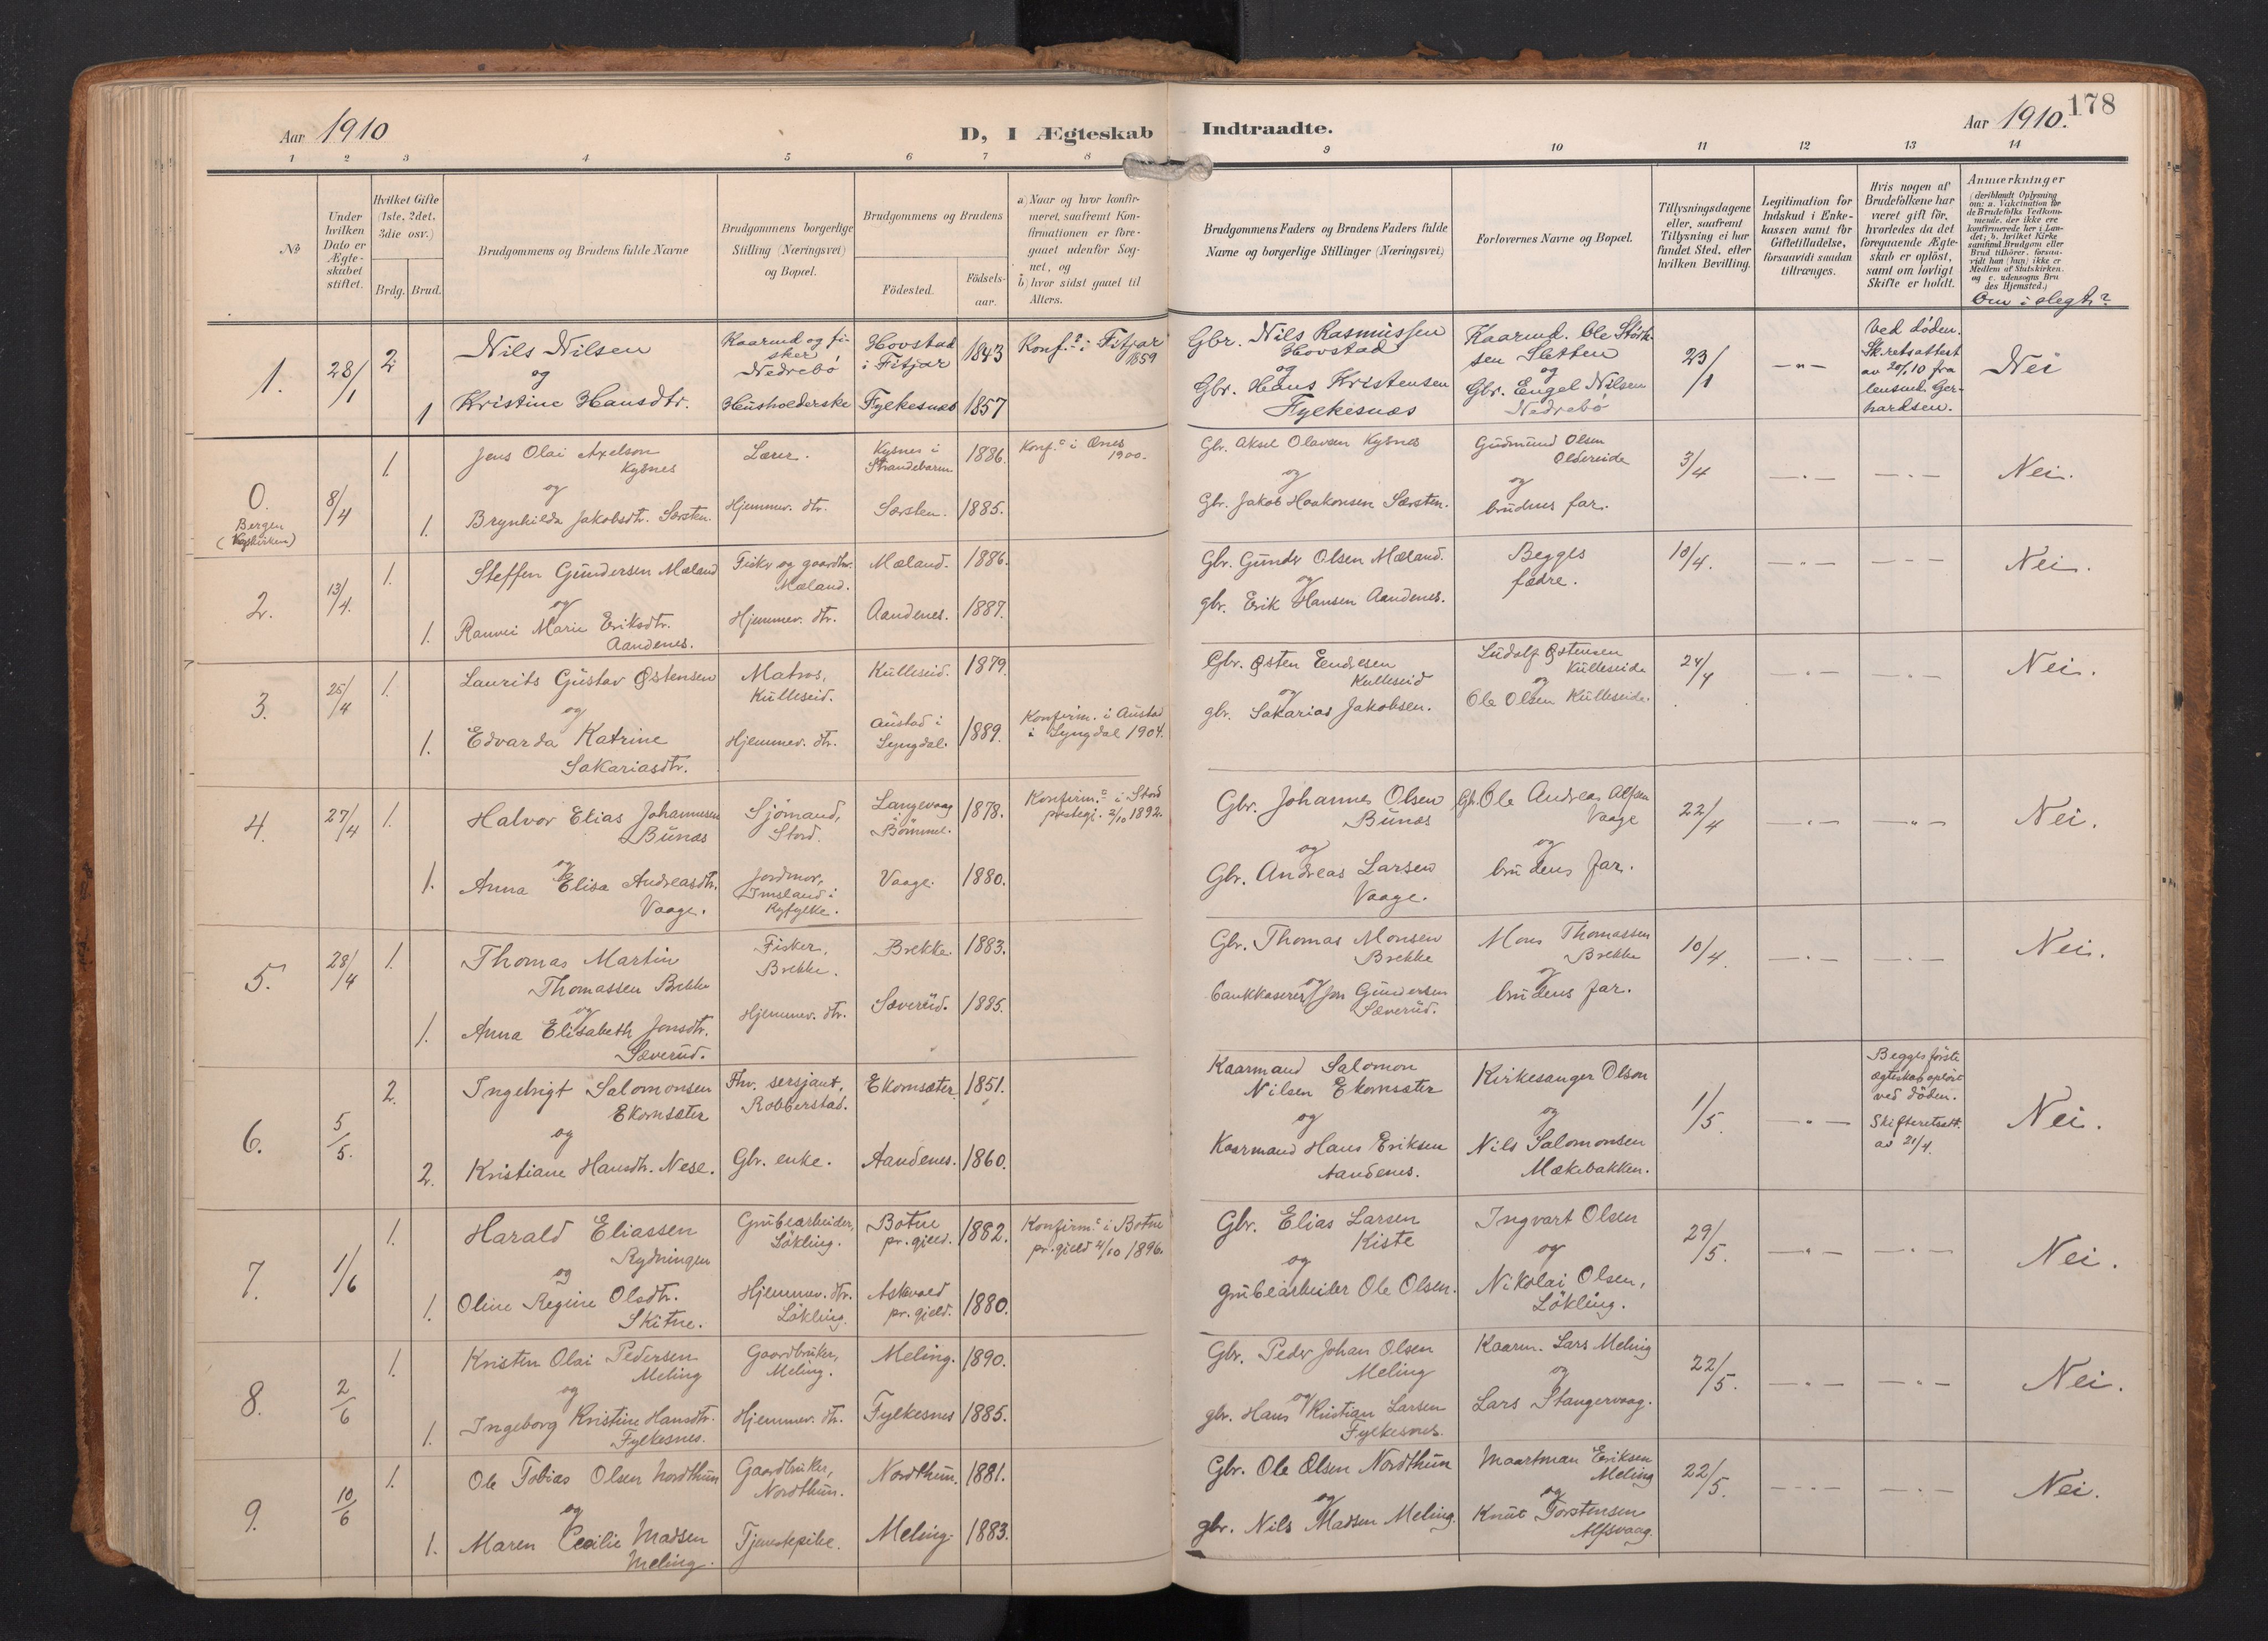 178
Aar 1910
D, I Ægteskab
Indtraadte.
Aar 1910.
1 2 3 4 5 6 7 8
9 10 11 12 13 14
No
Under hvilken Dato er Ægteskabet stiftet.
Hvilket Gifte (1ste, 2det, 3die osv.)
Brdg. Brud.
Brudgommens og Brudens fulde Navne
Brudgommens borgerlige Stilling (Næringsvei) og Bopæl.
Brudgommens og Brudens
Födested.
Födselsaar.
a) Naar og hvor konfirmeret, saafremt Konfirmationen er foregaaet udenfor Sognet, og
b) hvor sidst gaaet til Alters.
Brudgommens Faders og Brudens Faders fulde Navne og borgerlige Stillinger (Næringsvei)
Forlovernes Navne og Bopæl.
Tillysningsdagene eller, saafremt Tillysning ei har fundet Sted, efter hvilken Bevilling.
Legitimation for Indskud i Enkekassen samt for Giftetilladelse, forsaavidt saadan tiltrænges.
Hvis nogen af Brudefolkene har været gift för, hvorledes da det foregaaende Ægteskab er oplöst, samt om lovligt Skifte er holdt.
Anmærkninger
(deriblandt Oplysning om: a. Vakcination for de Brudefolks Vedkommende, der ikke ere konfirmerede her i Landet; b. hvilket Kirkesamfund Brudgom eller Brud tilhörer, forsaavidt han (hun) ikke er Medlem af Statskirken, og c. udensogns Brudes Hjemsted.)
Om i slegt?
1. 28/1 2
Nils Nilsen
og
1 Kristine Hansdtr.
Kaarmd og fisker
Nedrebö
Husholderske
Hovstad
i Fitjar
1843
Fylkesnes 1857
Konf. i Fitjar
1859
Gbr. Nils Rasmussen
Hovstad
og
Gbr. Hans Kristensen
Fylkesnæs
Kaarmd. Ole Störksen Sletten
og
Gbr. Engel Nilsen
Nedrebö
23/1
— " —
Ved döden.
Sk.retsattest
av 20/1 10 fra
lensmd. Gerhardsen.
Nei
0.
Bergen
8/4 1.
Jens Olai Axelson
Kysnes
og
1. Brynhilda Jakobsdtr. Særsten.
Lærer.
Hjemmev. dtr.
Kysnes i
Strandebarm
1886.
Særsten. 1885.
Konf. i Ænes
1900.
Gbr. Aksel Olavsen Kysnes
og
Gbr. Jakob Haakonsen Særsten.
Gudmund Olsen
Oldereide
og
brudens far.
3/4
— " —
— " —
Nei.
2. 13/4. 1.
Steffen Gundersen Mæland
og
1. Ranvei Marie Eriksdtr.
Aandenes.
Fisker og gaardbr.
Mæland.
Hjemmev. dtr.
Mæland. 1886.
Aandenes. 1887.
Gbr. Gunder Olsen Mæland.
og
gbr. Erik Hansen Aandenes.
Begges
fædre.
10/4.
— " —
— " —
Nei.
3. 25/4 1.
Laurits Gustav Østensen
og
1. Edvarda Katrine
Sakariasdtr.
Matros,
Kulleseid.
Hjemmev. dtr.
Kulleseid. 1879.
Austad i
Lyngdal. 1889.
Konfirm. i Austad
i Lyngdal 1904.
Gbr. Østen Endresen
Kulleseid
og
gbr. Sakarias Jakobsen.
Ludolf Østensen
Kulleseide
og
Ole Olsen Kulleseide.
24/4
— " —
— " —
Nei.
4. 27/4 1.
Halvor Elias Johannesen
Bunæs
og
1. Anna Elisa Andreasdtr.
Vaage.
Sjömand,
Stord.
Jordmor,
Imsland i
Ryfylke.
Langevaag
Bömmel.
1878.
Vaage. 1880.
Konfirm. i Stord
prestegj. 2/10 1892.
Gbr. Johannes Olsen
Bunæs
og
Gbr. Andreas Larsen
Vaage.
Gbr. Ole Andreas Alfsen
Vaage
og
brudens far.
22/4
— " —
— " —
Nei.
5. 28/4 1.
Thomas Martin
Thomassen Brekke
og
1. Anna Elisabeth Jonsdtr.
Sæverud.
Fisker,
Brekke.
Hjemmev. dtr.
Brekke. 1883.
Sæverud. 1885.
Gbr. Thomas Monsen
Brekke
og
bankkaserer Jon Gundersen
Sæverud.
Mons Thomassen
Brekke
og
brudens far.
10/4.
— " —
— " —
Nei.
6. 5/5. 2.
Ingebrigt Salomonsen
Ekornsæter
og
2. Kristiane Hansdtr. Nese.
Fhv. sersjant,
Robberstad.
Gbr. enke.
Ekornsæter. 1851.
Aandenes. 1860.
Kaarmand Salomon
Nilsen Ekornsæter
og
Kaarmand Hans Eriksen
Aandenes.
Kirkesanger Olson
og
Nils Salomonsen
Mækebakken.
1/5.
— " —
Begges förste
ægteskab oplöst
ved döden.
Skifteretsatt.
av 21/4.
Nei.
7. 1/6 1.
Harald Eliassen
Rydningen
og
1. Oline Regine Olsdtr.
Skitne.
Grubearbeider,
Lökling.
Hjemmev. dtr.
Lökling.
Botne
pr.gjeld. 1882.
Askvoll
pr. gjeld. 1880.
Konfirm. i Botne
pr.gjeld 4/10 1896.
Gbr. Elias Larsen
Kiste
og
grubearbeider Ole Olsen.
Ingvart Olsen
og
Nikolai Olsen,
Lökling.
29/5.
— " —
— " —
Nei.
8. 2/6 1.
Kristen Olai Pedersen
Meling
og
1. Ingeborg Kristine Hansdtr.
Fylkesnes.
Gaardbruker,
Meling.
Hjemmev. dtr.
Meling. 1890.
Fylkesnes 1885.
Gbr. Peder Johan Olsen
Meling
og
gbr. Hans Kristian Larsen
Fylkesnes.
Kaarm. Lars Meling
og
Lars Stangervaag.
22/5.
— " —
— " —
Nei.
9. 10/6 1.
Ole Tobias Olsen Nordthun
og
1. Maren Cecilie Madsen
Meling.
Gaardbruker,
Nordthun.
Tjenestepike.
Nordthun. 1881.
Meling. 1883.
Gbr. Ole Olsen Nordthun
og
gbr. Nils Madsen Meling.
Maartman Eriksen
Meling
og
Knut Torstensen
Alfsvaag.
22/5.
— " —
— " —
Nei.